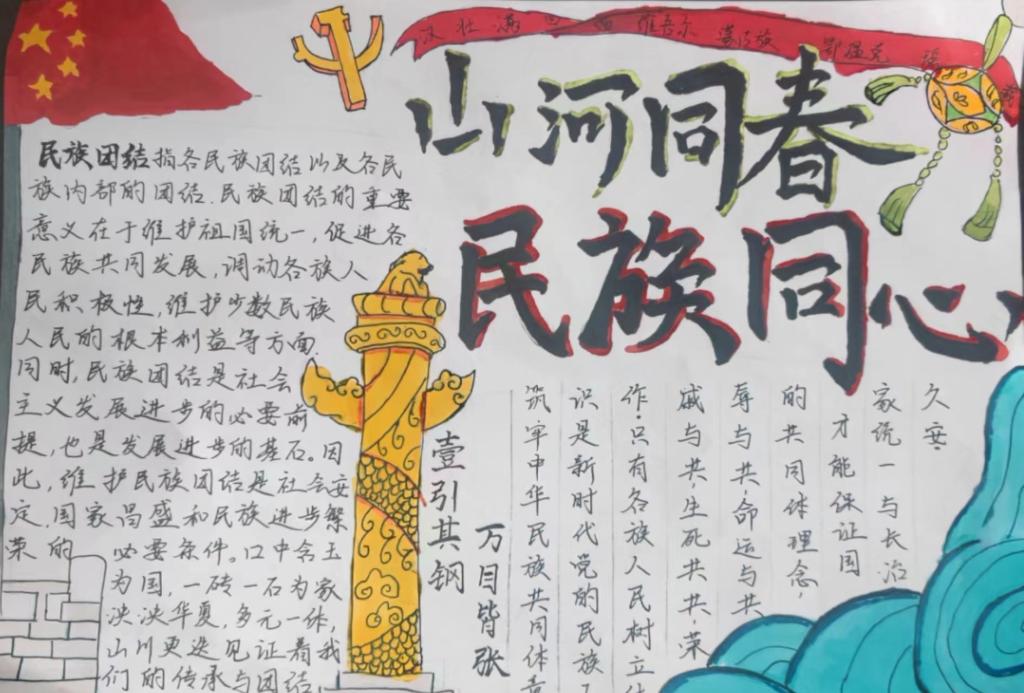 汉 壮 满 回 维吾尔 鄂温克
山河同春
民族同心
民族团结指各民族团结以及各民
族内部的团结.民族团结的重要
意义在于维护祖国统一,促进各
民族共同发展,调动各族人
民积极性,维护少数民族
人民的根本利益等方面.
同时,民族团结是社会
主义发展进步的必要前
提,也是发展进步的基石。因
此,维护民族团结是社会安
定,国家昌盛和民族进步繁
荣的 必要条件。口中含玉
为国,一砖一石为家
泱泱华夏,多元一体,
山川更迭见证着我
们的传承与团结
壹引其钢
万目皆张
筑牢中华民族共同体意
识是新时代党的民族
作.只有各族人民树立休
戚与共,生死共共,荣
辱与共,命运与共
的共同体理念,
才能保证国
家说一与长治
久安.